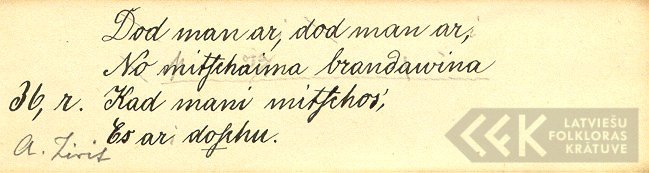 Dod man ar, dod man ar,
No mitſchaima brandawina
36, r. Kad mani mitſchos',
Es ari doſhu.
A. Zirit
LATVIEŠU
FOLKLORAS
KRĀTUVE